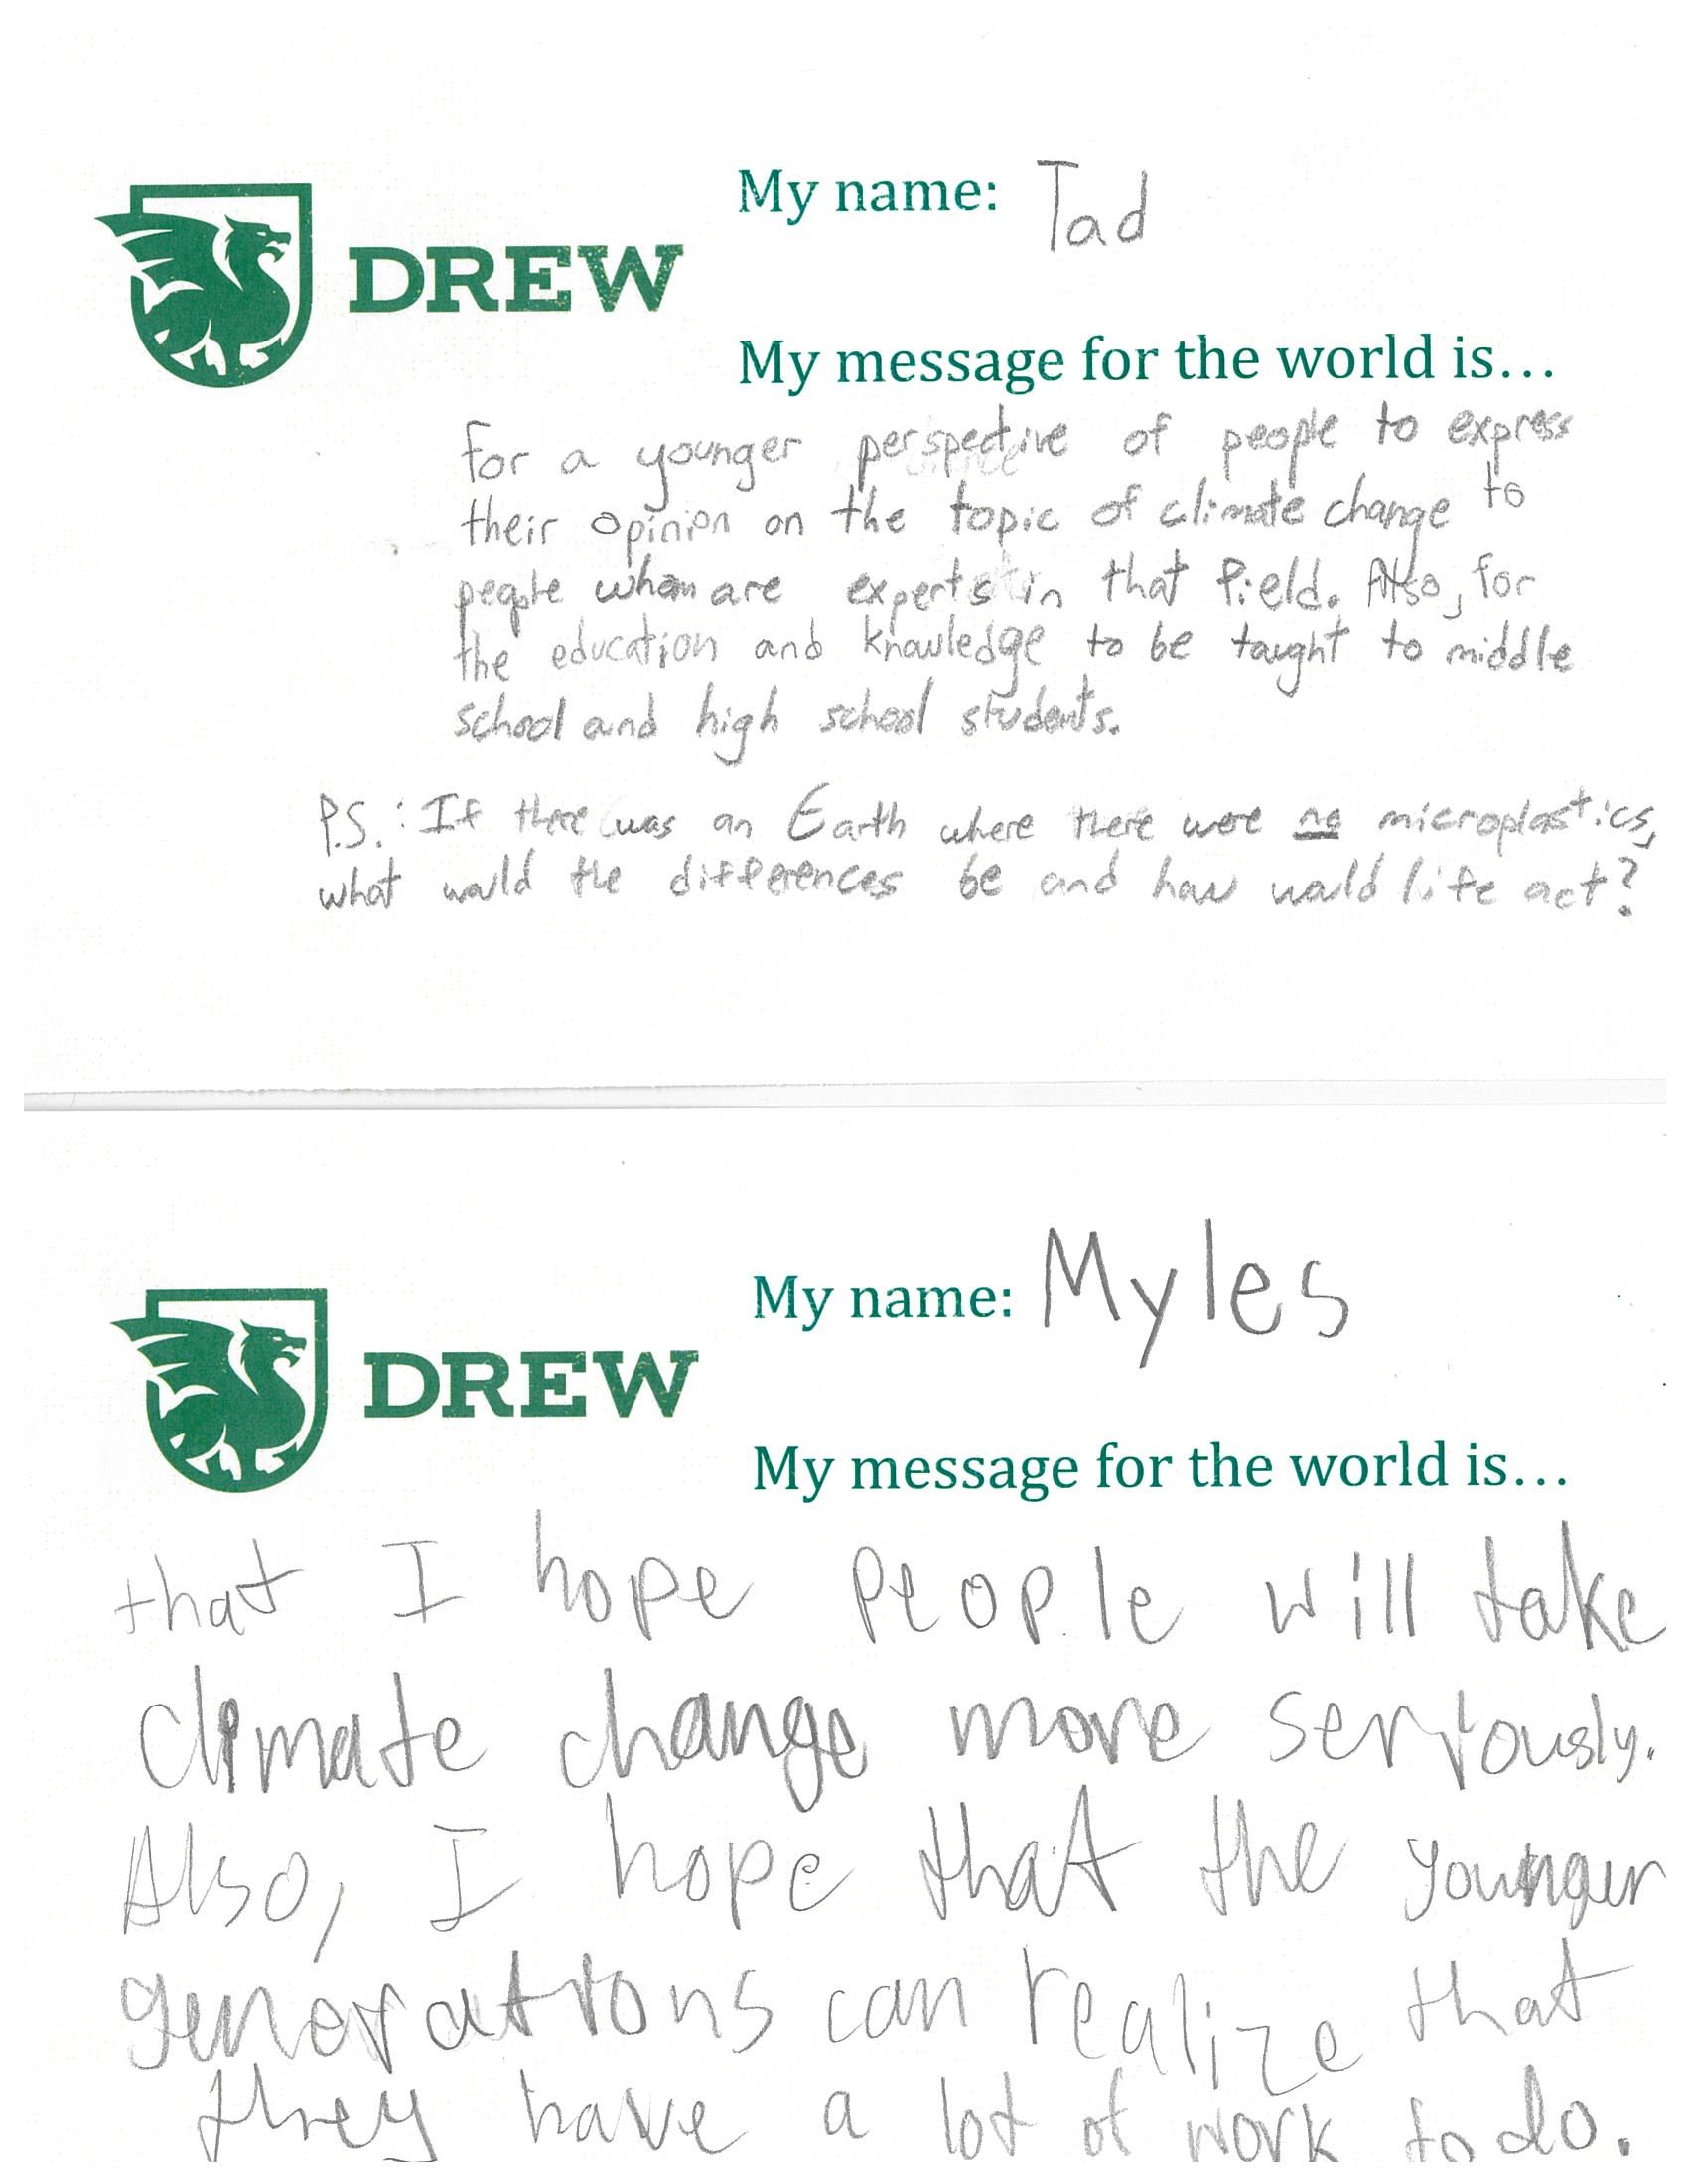 My name: Tad
DREW
My message for the world is...
For a younger perspective of people to express
their opinion on the topic of climate change to
people whom are experts in that field. Also, for
the education and knowledge to be taught to middle
school and high school students.
P.S.: If there was an Earth where there were no microplastics,
what would the differences be and how would life act?
My name: Myles
DREW
My message for the world is...
that I hope people will take
climate change more seriously.
Also, I hope that the younger
generations can realize that
they have a lot of work to do.